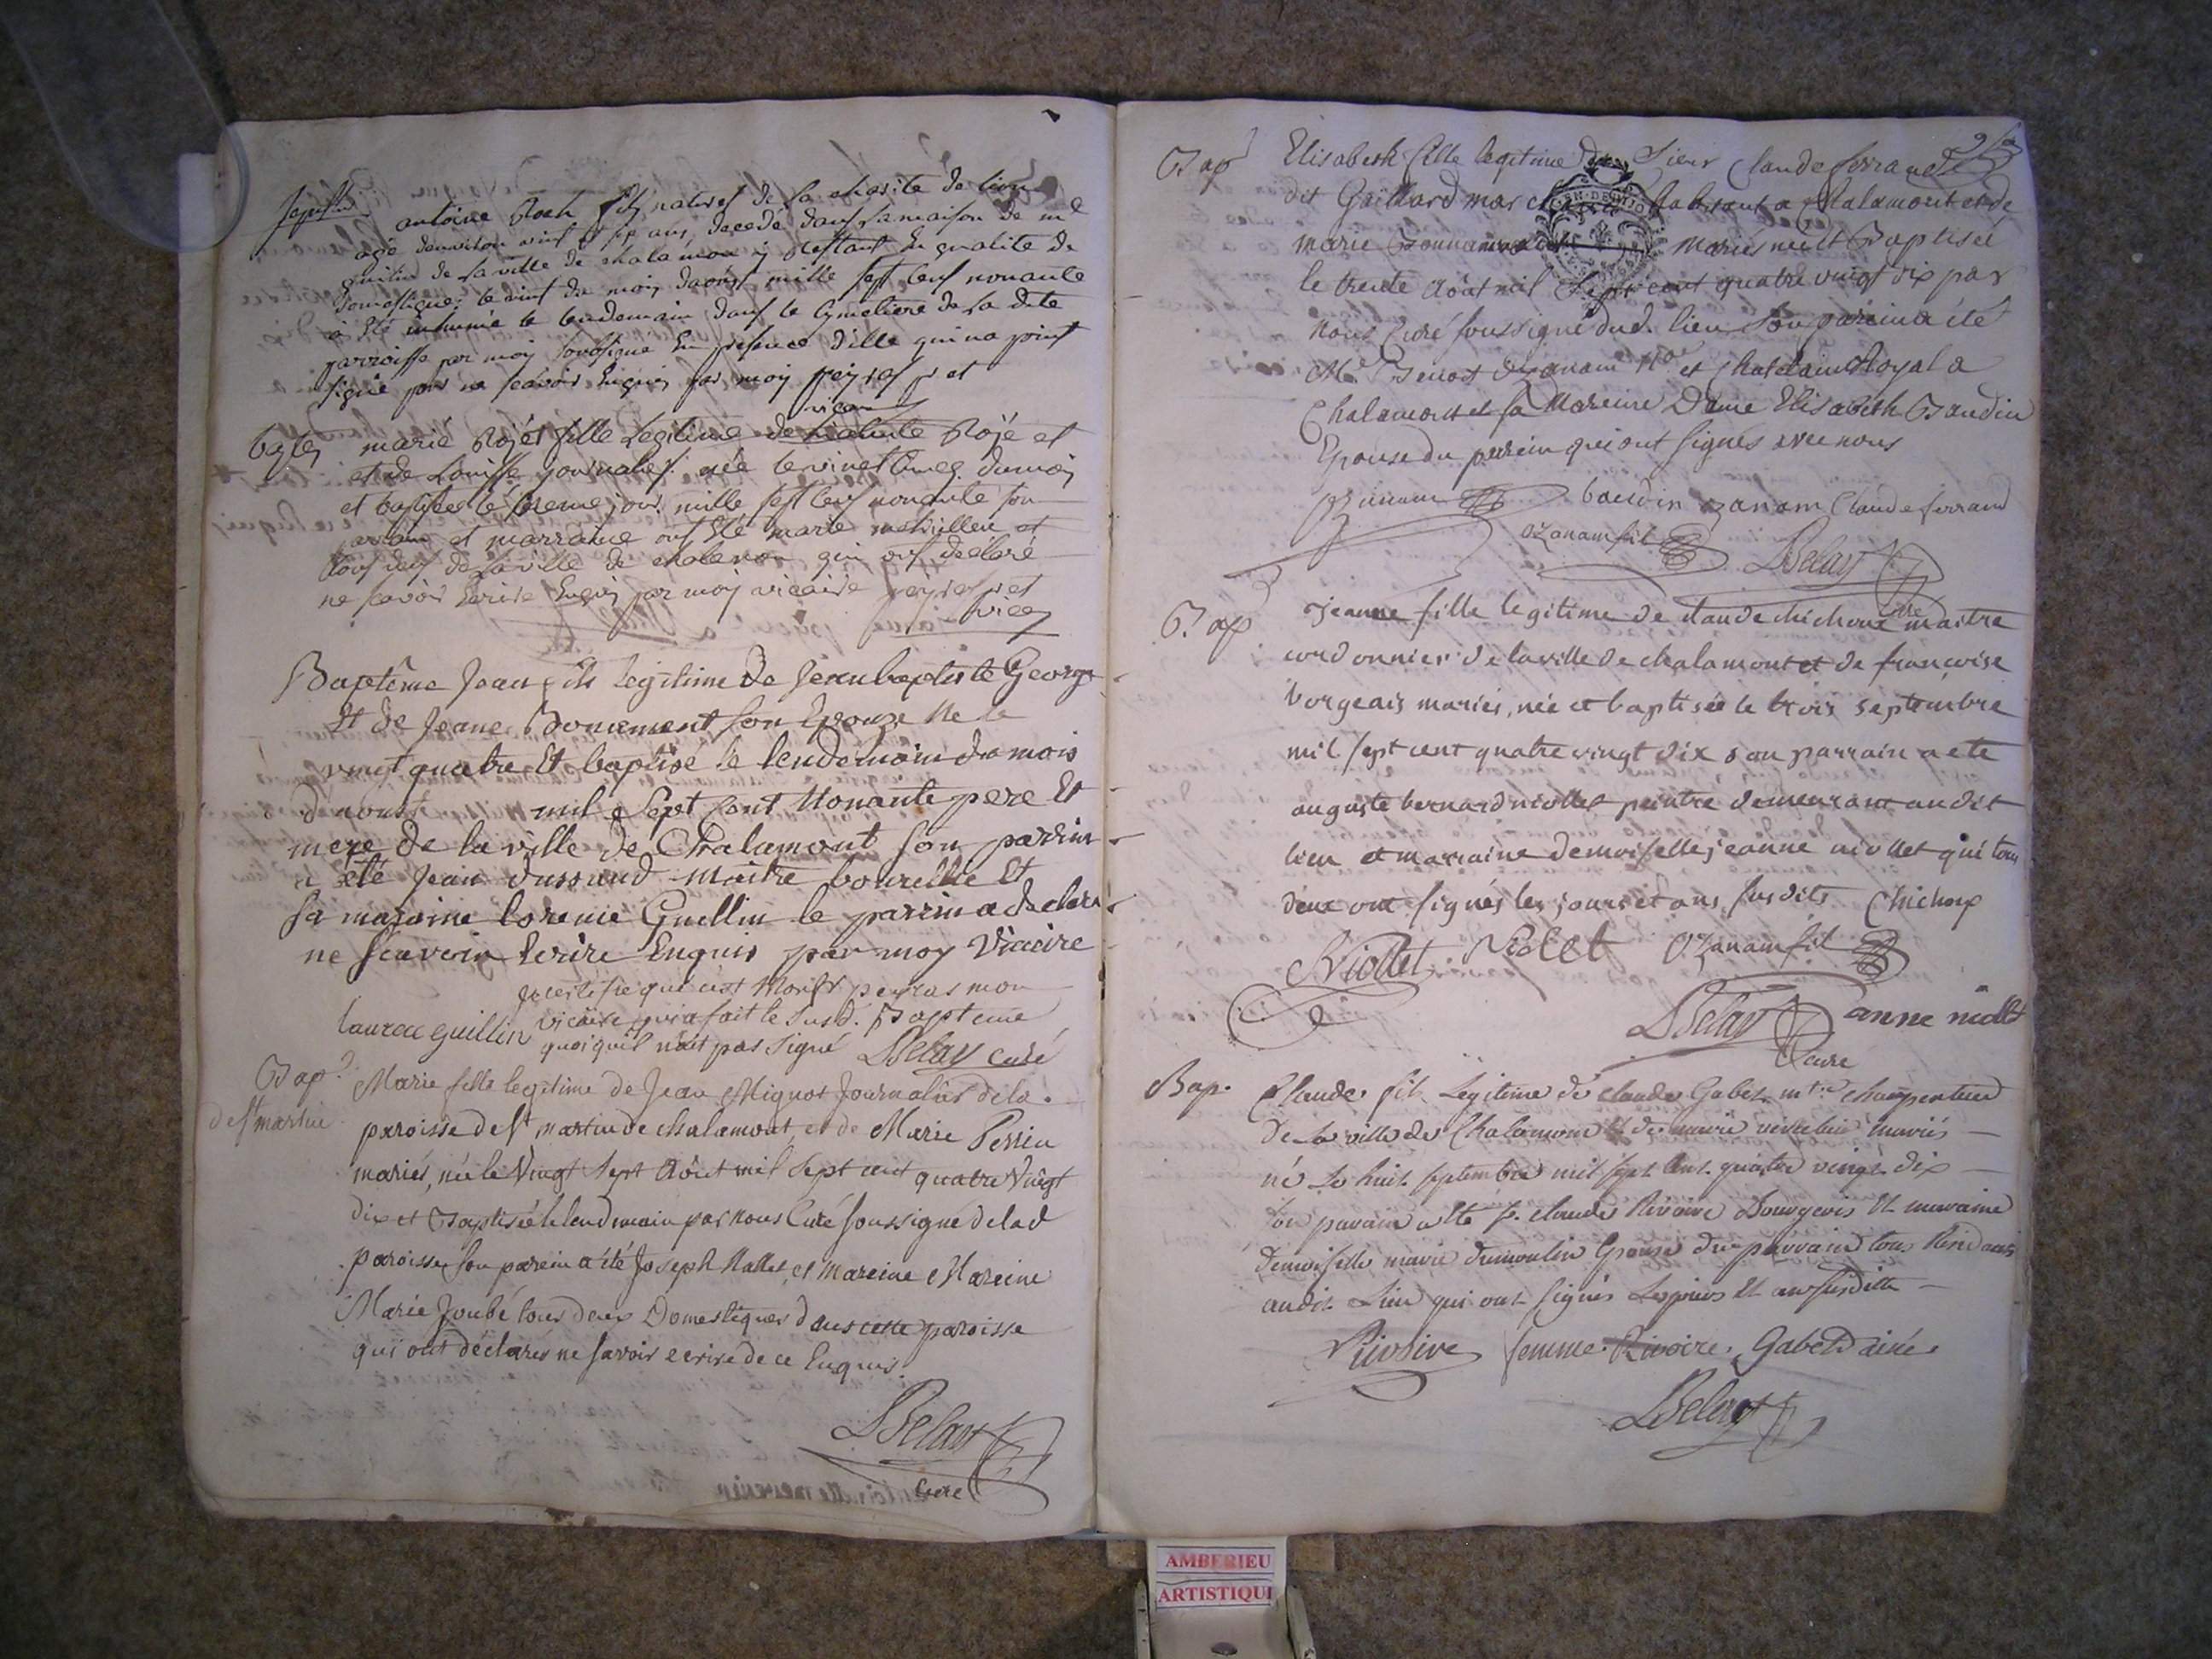 antoine Roch fils naturel de la charité de lion
agé denviron vint et sept ans decedé dans la maison de mr
guilin de la ville de chalamon y restant en qualité de
domestique, le vint du mois daoust mille sept cens nonante
a eté inhumé le lendemain dans le cymetiere de la dite
parroisse par moy soussigné en presence dille qui na point
signé pour ne scavoir enquis par moy peyras p et
vicair
marie Rojet fille legitime de Rojé et
et de Louisse journalier née le vint cinq du mois
et baptisée le meme jour mille sept cens nonante son
parrain et marraine ont eté marie et
tous deux de la ville de chalamon qui ont declaré
ne scavoir ecrire enquis par moy vicaire peyras p et
vice
Baptême Jean fils legitime de Jean baptiste George
Et de Jeane Bonnement son Epouze Ne le
vingt quatre Et baptisé le lendemain du mois
daoust mil Sept Cent Nonante pere Et
mere de la ville de Chalamont son parrin
a été Jean dussaud maitre bourellie Et
sa maraine lorence Guillin le parrin a declaré
ne scavoir Ecrire Enquis par moy Vicaire
Je certifie que c'est Monsr peyras mon
vicaire qui a fait le susd. Baptême
laurence guillin
quoiquil n'ait pas signé LBelay curé
Bap.
de St martin
Marie fille legitime de Jean Mignot Journalier de la
paroisse de St martin de chalamont, et de Marie Perrin
mariés, née le Vingt Sept Août mil Sept cent quatre Vingt
dix et Baptisée le lendemain par nous Curé soussigné de lad
paroisse, son parein a été Joseph Mallet, et mareine Mareine
Marie Joubé tous deux Domestiques dans cette paroisse
qui ont déclarés ne savoir ecrire de ce Enquis.
LBelay
Curé
Bap
Elisabeth fille legitime du Sieur Claude ferrand
dit Gaillard habitant a Chalamont et de
marie mariés née et Baptisée
le trente Août mil Sept cent quatre vingt dix par
nous Curé soussigné dud. lieu Son parein a été
Me Benoit Ozanam Nre et Chatelain Royal a
Chalamont et sa Mareine Dame Elisabeth Baudin
Epouse du parein qui ont signés avec nous
Ozanam baudin ozanam Claude ferrand
Ozanam fils LBelay
Curé
Bap
Jeanne fille legitime de claude chichoux maitre
cordonnier de la ville de chalamont et de francoise
Vorgeais mariés, née et baptisée le trois septembre
mil sept cent quatre vingt dix son parrain a ete
auguste bernard niollet peintre demeurant au dit
lieu et marraine demoiselle jeanne niollet qui tous
deux ont signés les jours et ans susdits Chichoux
Niollet Ozanam fils
LBelay anne niollet
Cure
Bap.
Claude fils Legitime de claude Gabet mtre charpentier
De la ville de Chalamont et de marie mariés
né Le huit septembre mil sept cent quatre vingt dix
son parain a eté Sr. claude Rivoire Bourgeois et maraine
demoiselle marie dumoulin Epouse du parrain tous Residants
audit Lieu qui ont signés Les jours et an susditte
Rivoire femme Rivoire. Gabet ainé.
LBelay
AMBERIEU
ARTISTIQUE